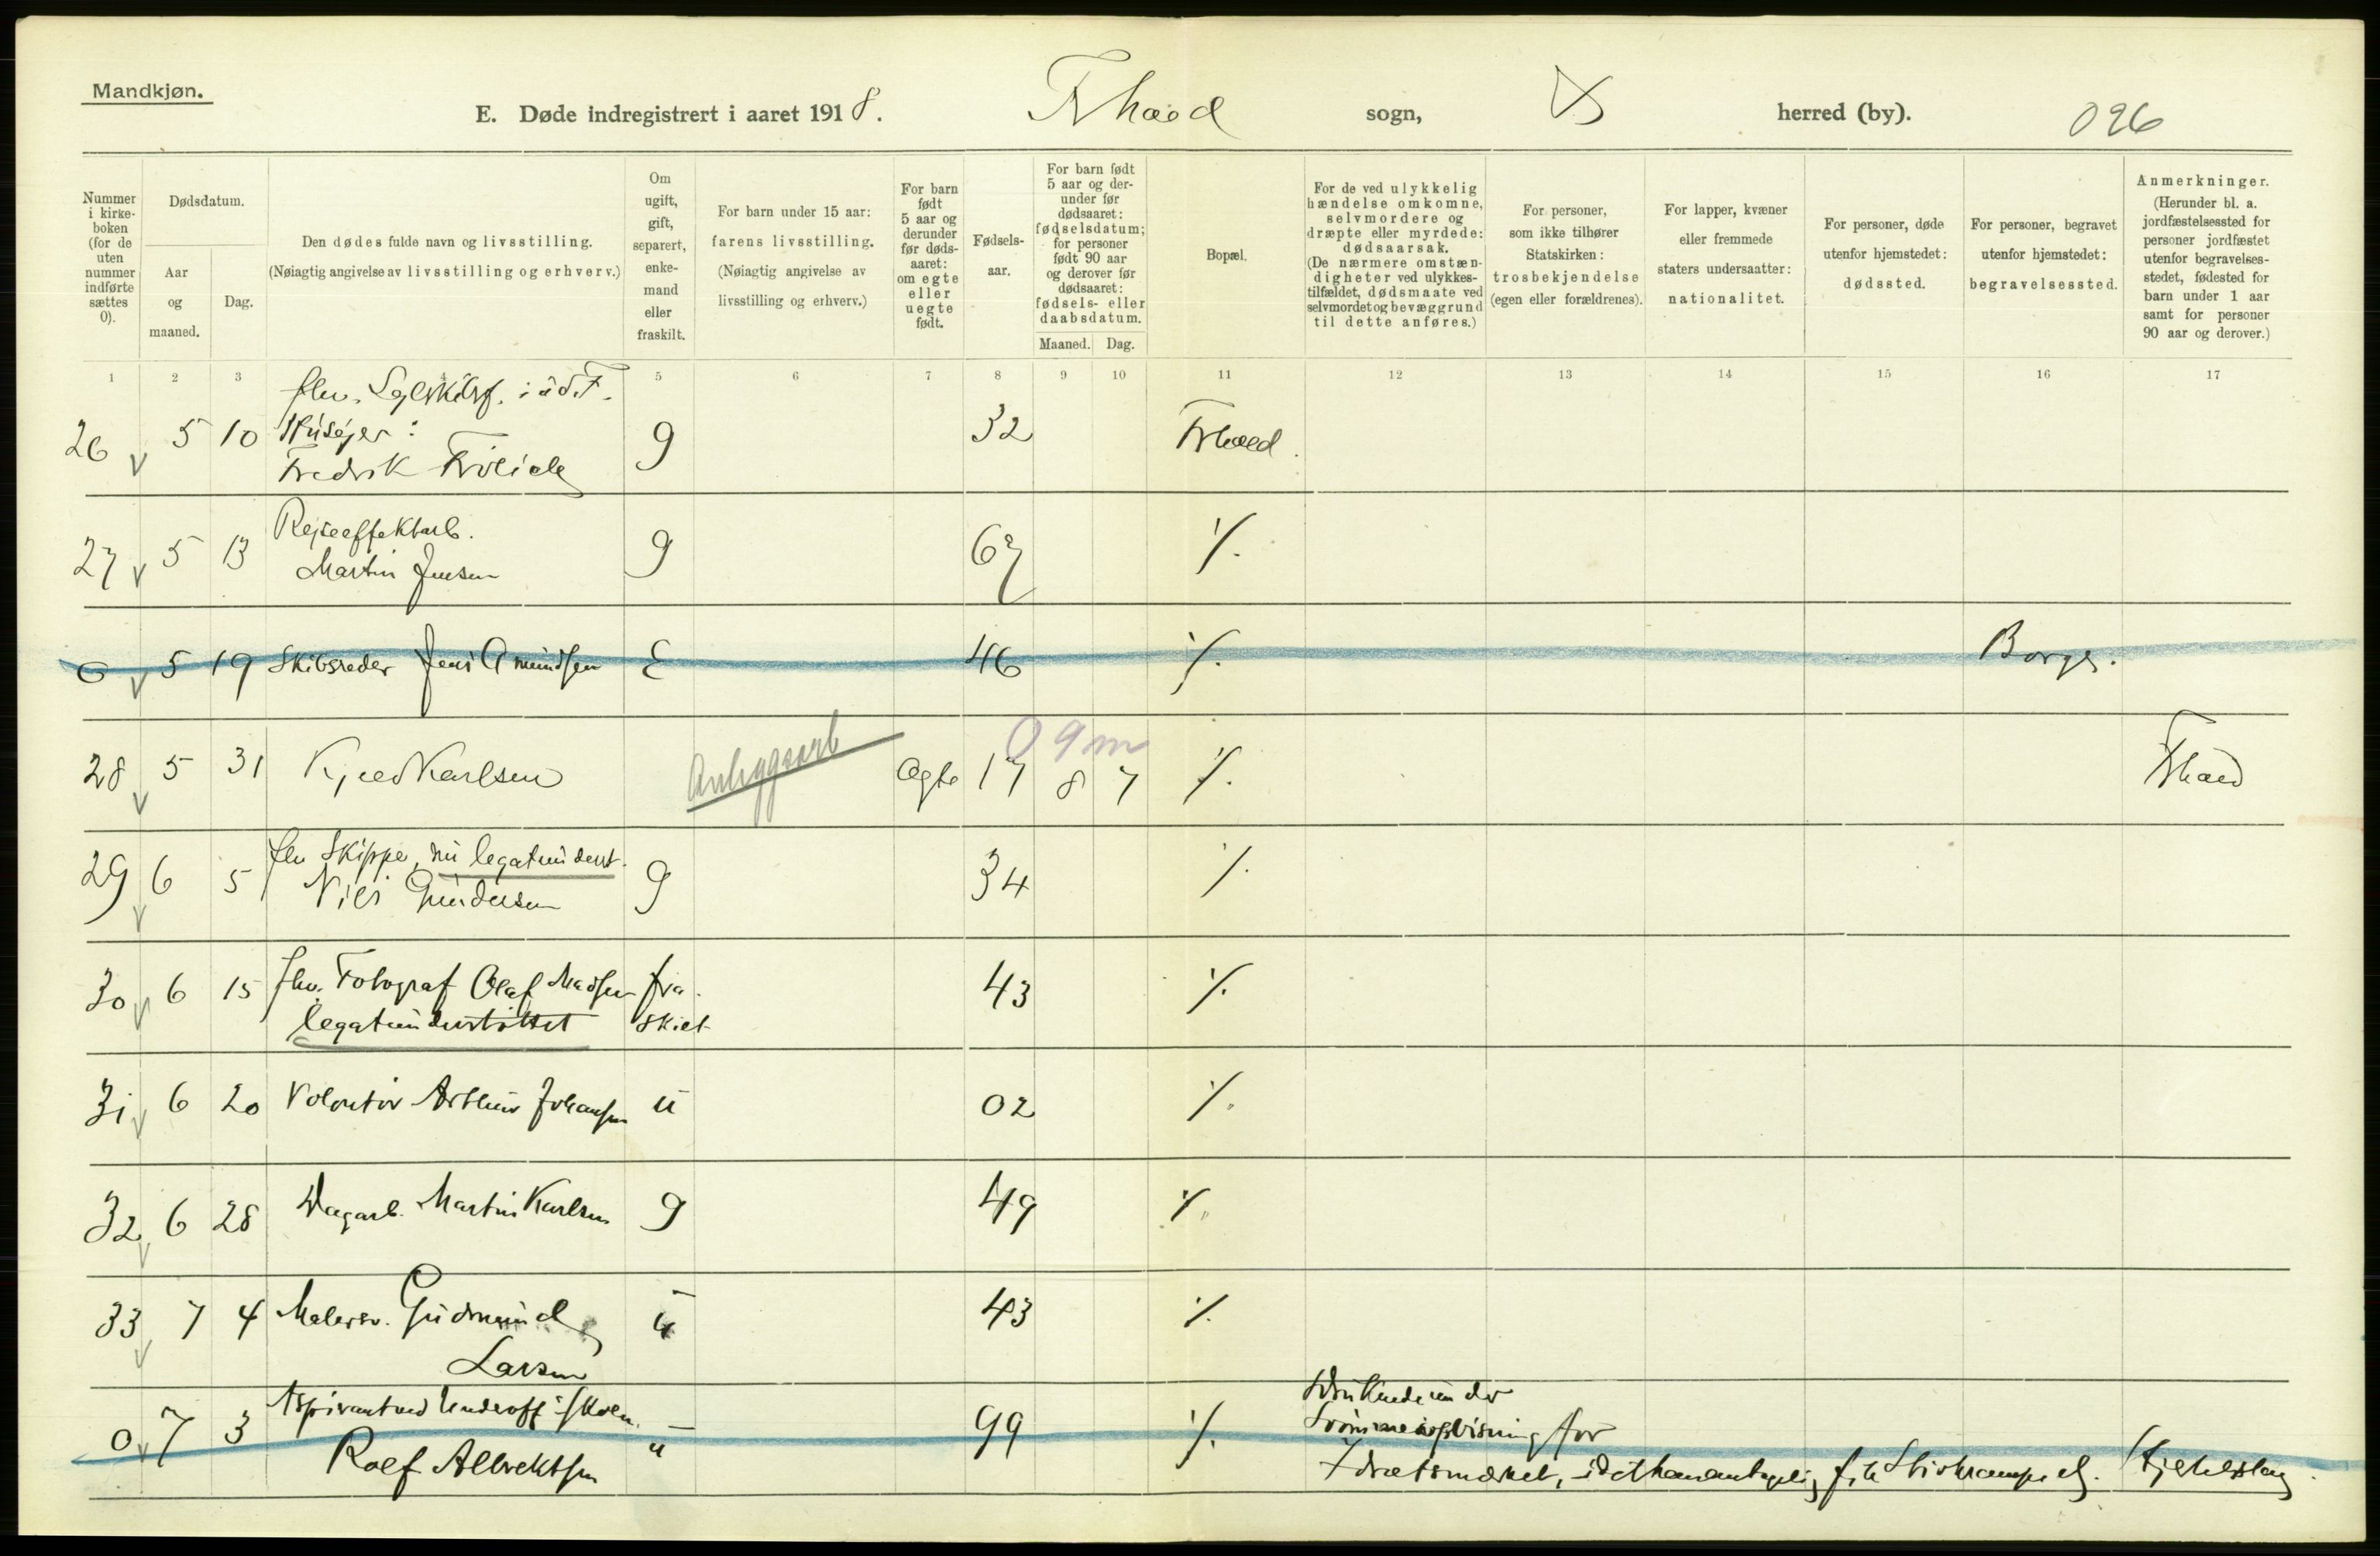 Mandkjøn.
E. Døde indregistrert i aaret 1918.
Frhald
sogn,
herred (by).
096
Nummer
i kirke-
boken
(for de
uten
nummer
indførte
sættes
0).
Dødsdatum.
Aar
og
maaned.
Dag.
Den dødes fulde navn og livsstilling.
(Nøiagtig angivelse av livsstilling og erhverv.)
Om
ugift,
gift,
separert,
enke-
mand
eller
fraskilt.
For barn under 15 aar:
farens livsstilling.
(Nøiagtig angivelse av
livsstilling og erhverv.)
For barn
født
5 aar og
derunder
før døds-
aaret:
om egte
eller
uegte
født.
Fødsels-
aar.
For barn født
5 aar og der-
under før
dødsaaret:
fødselsdatum;
for personer
født 90 aar
og derover før
dødsaaret:
fødsels- eller
daabsdatum.
Maaned. Dag.
Bopæl.
For de ved ulykkelig
hændelse omkomne,
selvmordere og
dræpte eller myrdede:
dødsaarsak.
(De nærmere omstæn-
digheter ved ulykkes-
tilfældet, dødsmaate ved
selvmordet og bevæggrund
til dette anføres.)
For personer,
som ikke tilhører
Statskirken:
trosbekjendelse
(egen eller forældrenes).
For lapper, kvæner
eller fremmede
staters undersaatter:
nationalitet.
For personer, døde
utenfor hjemstedet:
dødssted.
For personer, begravet
utenfor hjemstedet:
begravelsessted.
Anmerkninger.
(Herunder bl. a.
jordfæstelsessted for
personer jordfæstet
utenfor begravelses-
stedet, fødested for
barn under 1 aar
samt for personer
90 aar og derover.)
1 2 3 5 6 7 8 9 10 11 12 13 14 15 16 17
Husejer:
26 5 10 Fredrik Frölich g 32 Frhald.
Rejseeffektarb.
27 5 13 Martin Jensen g 67 ./.
0 5 19 Skibsreder Jens Amundsen E 46 ./. Borge.
09m
28 5 31 Karlsen Anlæggsarb Ægte 17 8 7 ./. Frhald
fhv Skipper, nu legatunderst.
29 6 5 Nils Gundersen g 34 ./.
30 6 15 fhv. Fotograf Olaf Madsen fra- 43 ./.
legatunderstöttet skilt
31 6 20 Volontör Arthur Johansen u 02 ./.
32 6 28 Dagarb. Martin Karlsen g 49 ./.
33 7 4 Malersv. Gudmund u 43 ./.
Larsen
Aspirant ved Underoff. skolen. Druknede under
0 7 3 u 99 ./. Svømmeopvisning for
Rolf Albrektsen Idrætsmærket, idet han antagelig fik